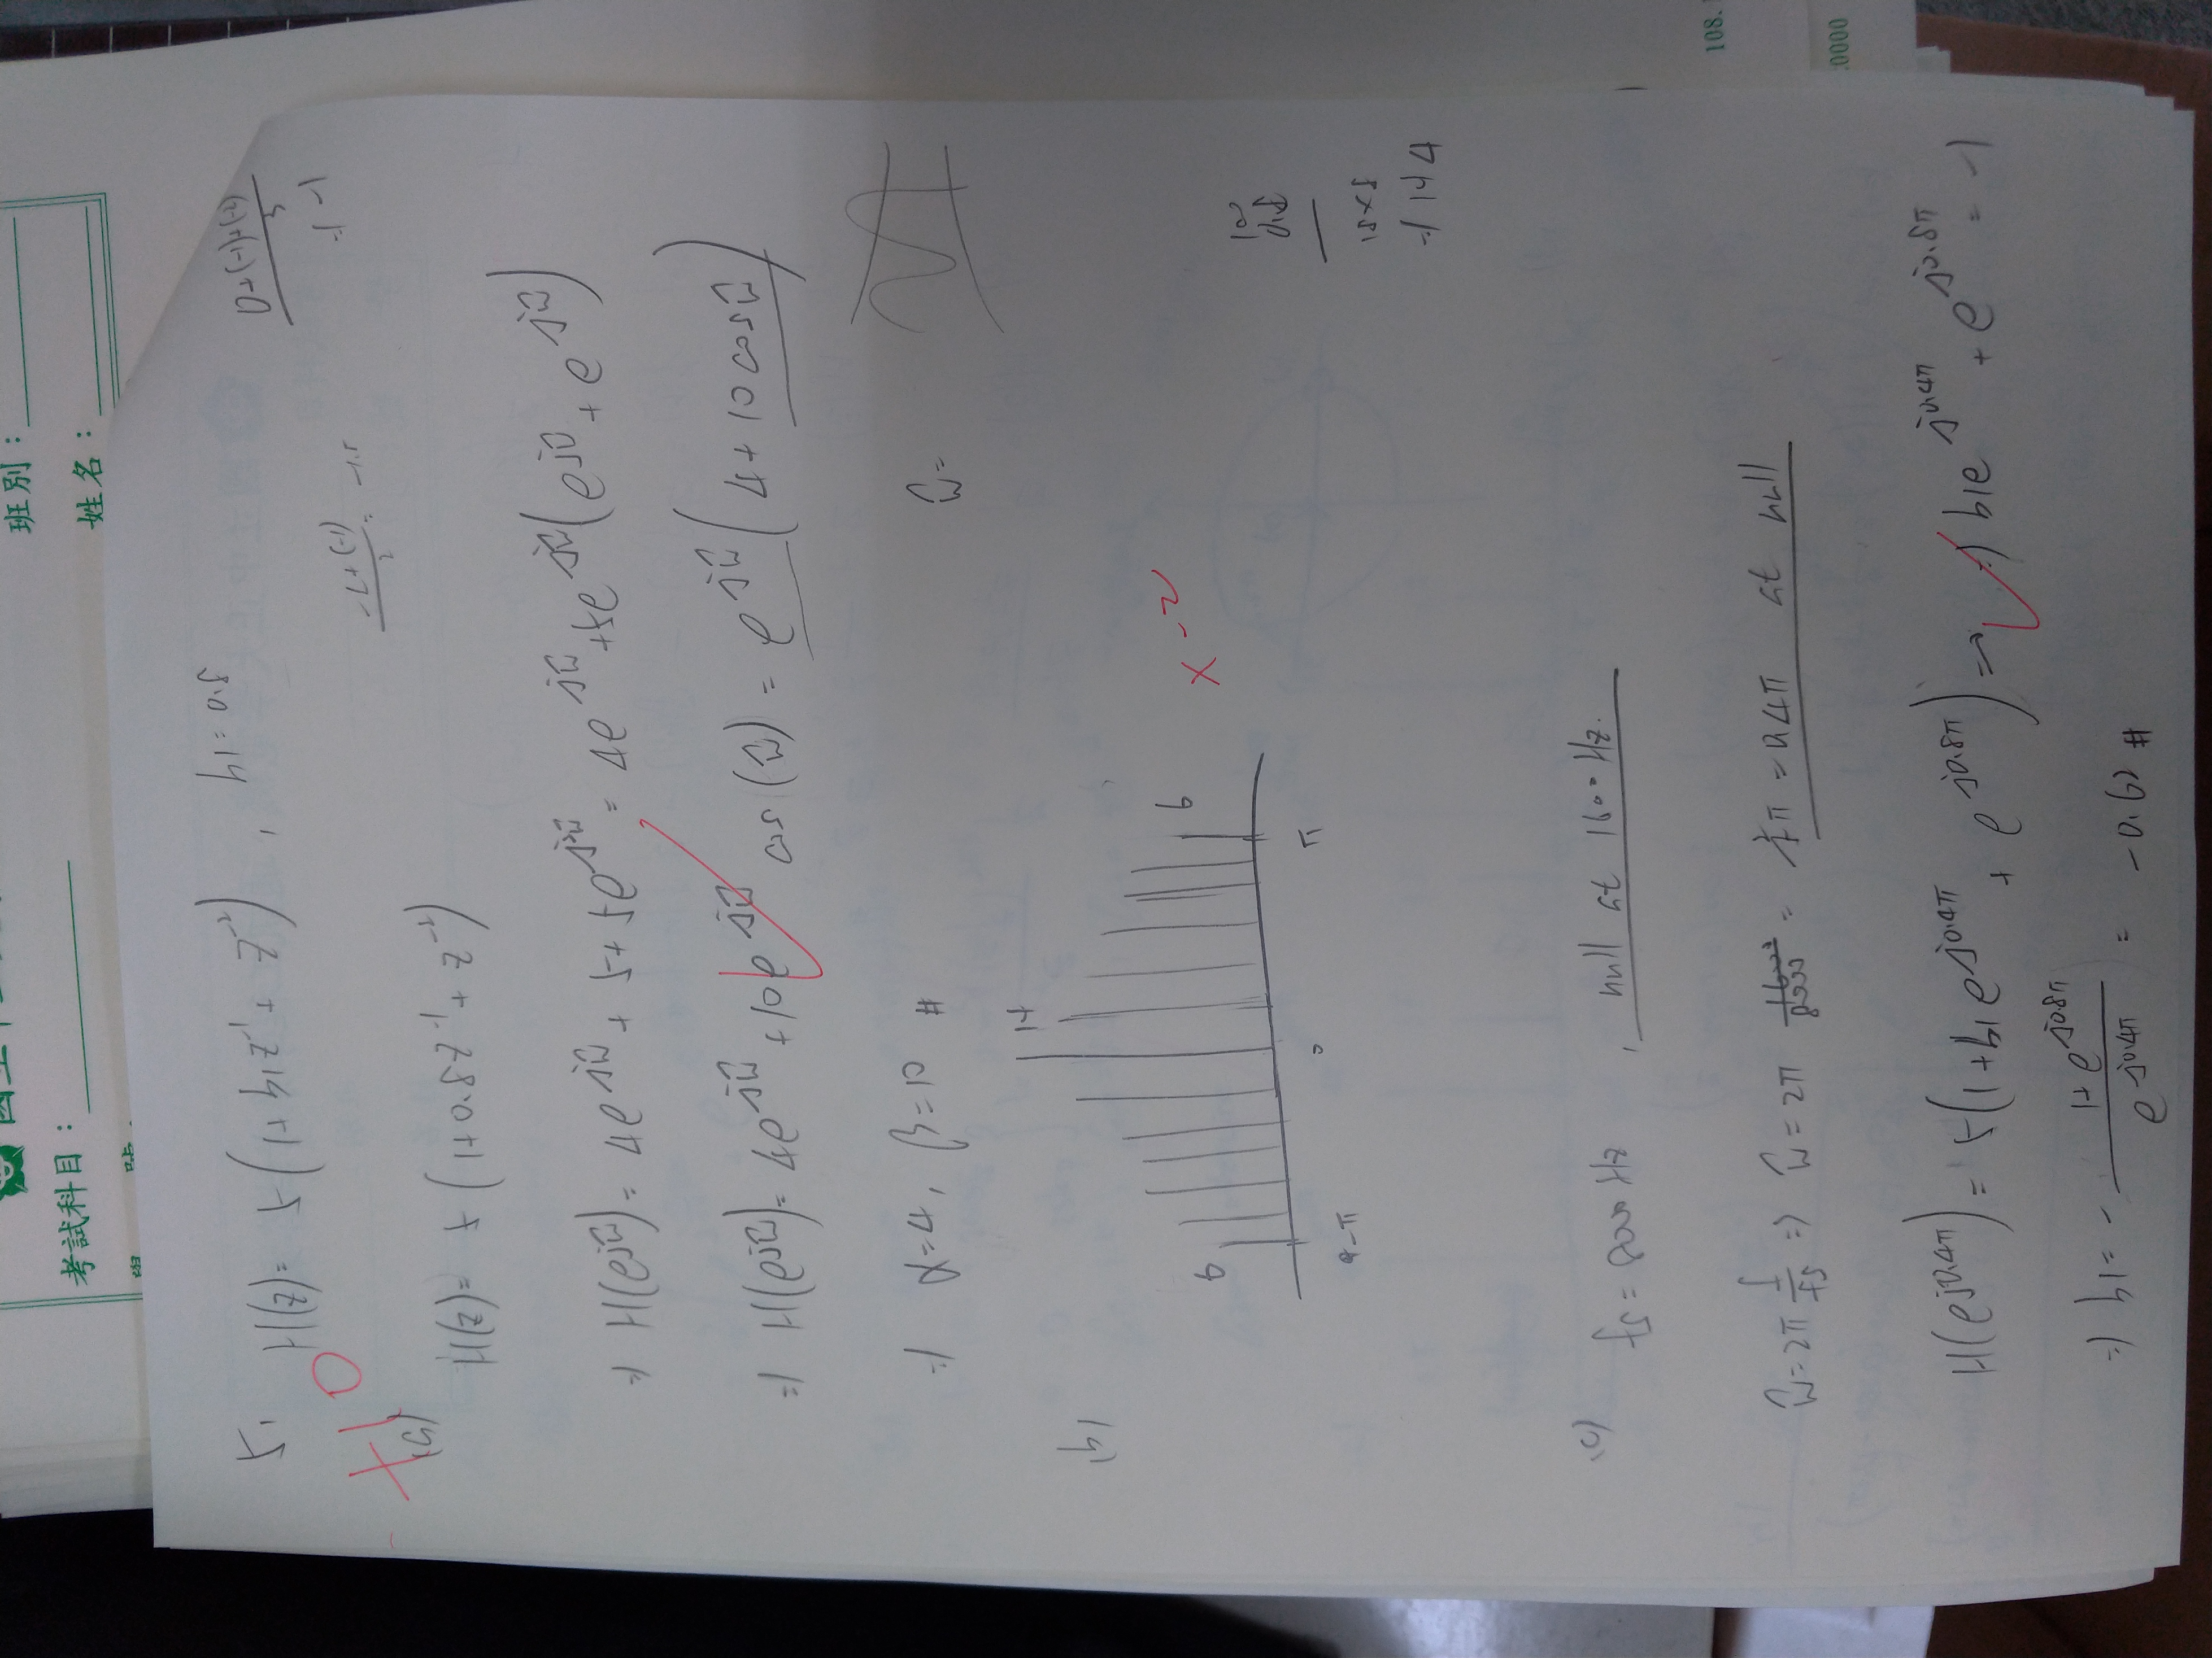 考試科目：
班別：
姓名：
5. H(z) = 5(1+b1z^-1 + z^-2), b1 = 0.8
+10
0+(-1)+(-2) / 3
⇒ -1
-2+(-1) / 2 = -1.5
(a)
H(z) = 5(1+0.8z^-1 + z^-2)
⇒ H(e^jω̂) = 4e^-jω̂ + 5 + 5e^-j2ω̂ = 4e^-jω̂ + 5e^-jω̂(e^jω̂ + e^-jω̂)
⇒ H(e^jω̂) = 4e^-jω̂ + 10e^-jω̂ cos(ω̂) = e^-jω̂(4 + 10cosω̂)
⇒ α=4, β=10 #
ω̂=
(b)
14
6
6
x -2
-π 0 π
⇒ 144
(c) fs = 8000 Hz, null at 1600 Hz.
ω̂ = 2π f/fs ⇒ ω̂ = 2π 1600/8000 = π = 0.4π at null
H(e^j0.4π) = 5(1+b1e^-j0.4π + e^-j0.8π) = 0 ⇒ b1e^-j0.4π + e^-j0.8π = -1
⇒ b1 = - 1+e^-j0.8π / e^-j0.4π = -0.62 #
108.
0000